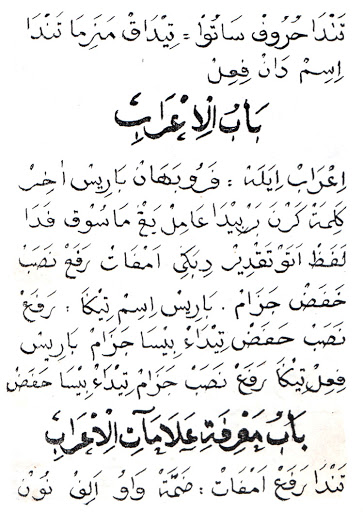 تَنْدَا حُرُوْفْ سَاتُوْا = تِيْدَاقْ مَنَرِمَا تَنْدَا
اِسِمْ دَانْ فِعِلْ
بَابُ الْاِعْرَابِ
اِعْرَابْ اِيَلَهْ : فَرُوْبَهَانْ بَارِيسْ اٰخِرْ
كَلِمَةْ كَرَنَ بَرْبِيْدَا عَامِلْ يَڠْ مَاسُوْقْ فَدَا
لَفَظْ اَتَوْ تَقْدِيْرْ دِبَكِي اَمْفَاتْ رَفَعْ نَصَبْ
خَفَضْ جَزَامْ . بَارِيسْ اِسِمْ تِيْكَا : رَفَعْ
نَصَبْ خَفَضْ تِيْدَاءْ بِيْسَا جَزَامْ بَارِيسْ
فِعِلْ تِيْكَا رَفَعْ نَصَبْ جَزَامْ تِيْدَاءْ بِيْسَا خَفَضْ
بَابُ مَعْرِفَةِ عَلَامَاتِ الْاِعْرَابِ
تَنْدَا رَفَعْ اَمْفَاتْ : ضَمَّةْ وَاوْ اَلِفْ نُوْنْ